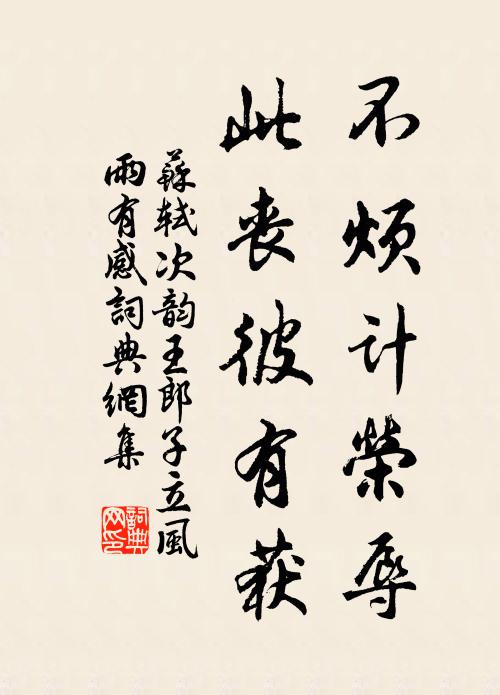 不烦计榮辱
此丧彼有获
蘇轼次韵王郎子立風
雨有感詞典網集
詞典网印